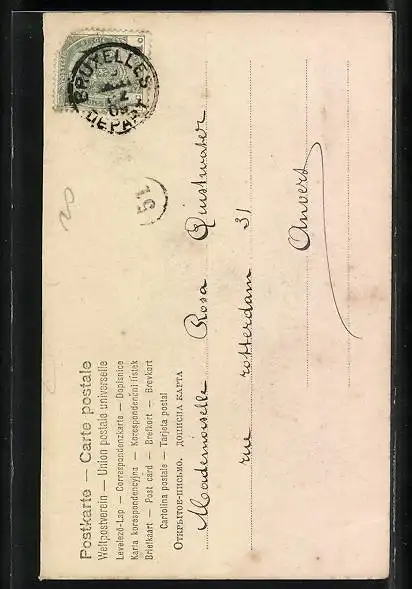 Postkarte — Carte postale
Weltpostverein — Union postale universelle
Levelező-Lap — Correspondenzkarte — Dopisnice
Karta korespondencyjna — Korespondenční lístek
Briefkaart — Post card — Brefkort — Brevkort
Cartolina postale — Tarjeta postal
Открытое-письмо. дописна карта
BRUXELLES
DEPART
51
20
Mademoiselle Rosa
rue rotterdam 31
Anvers